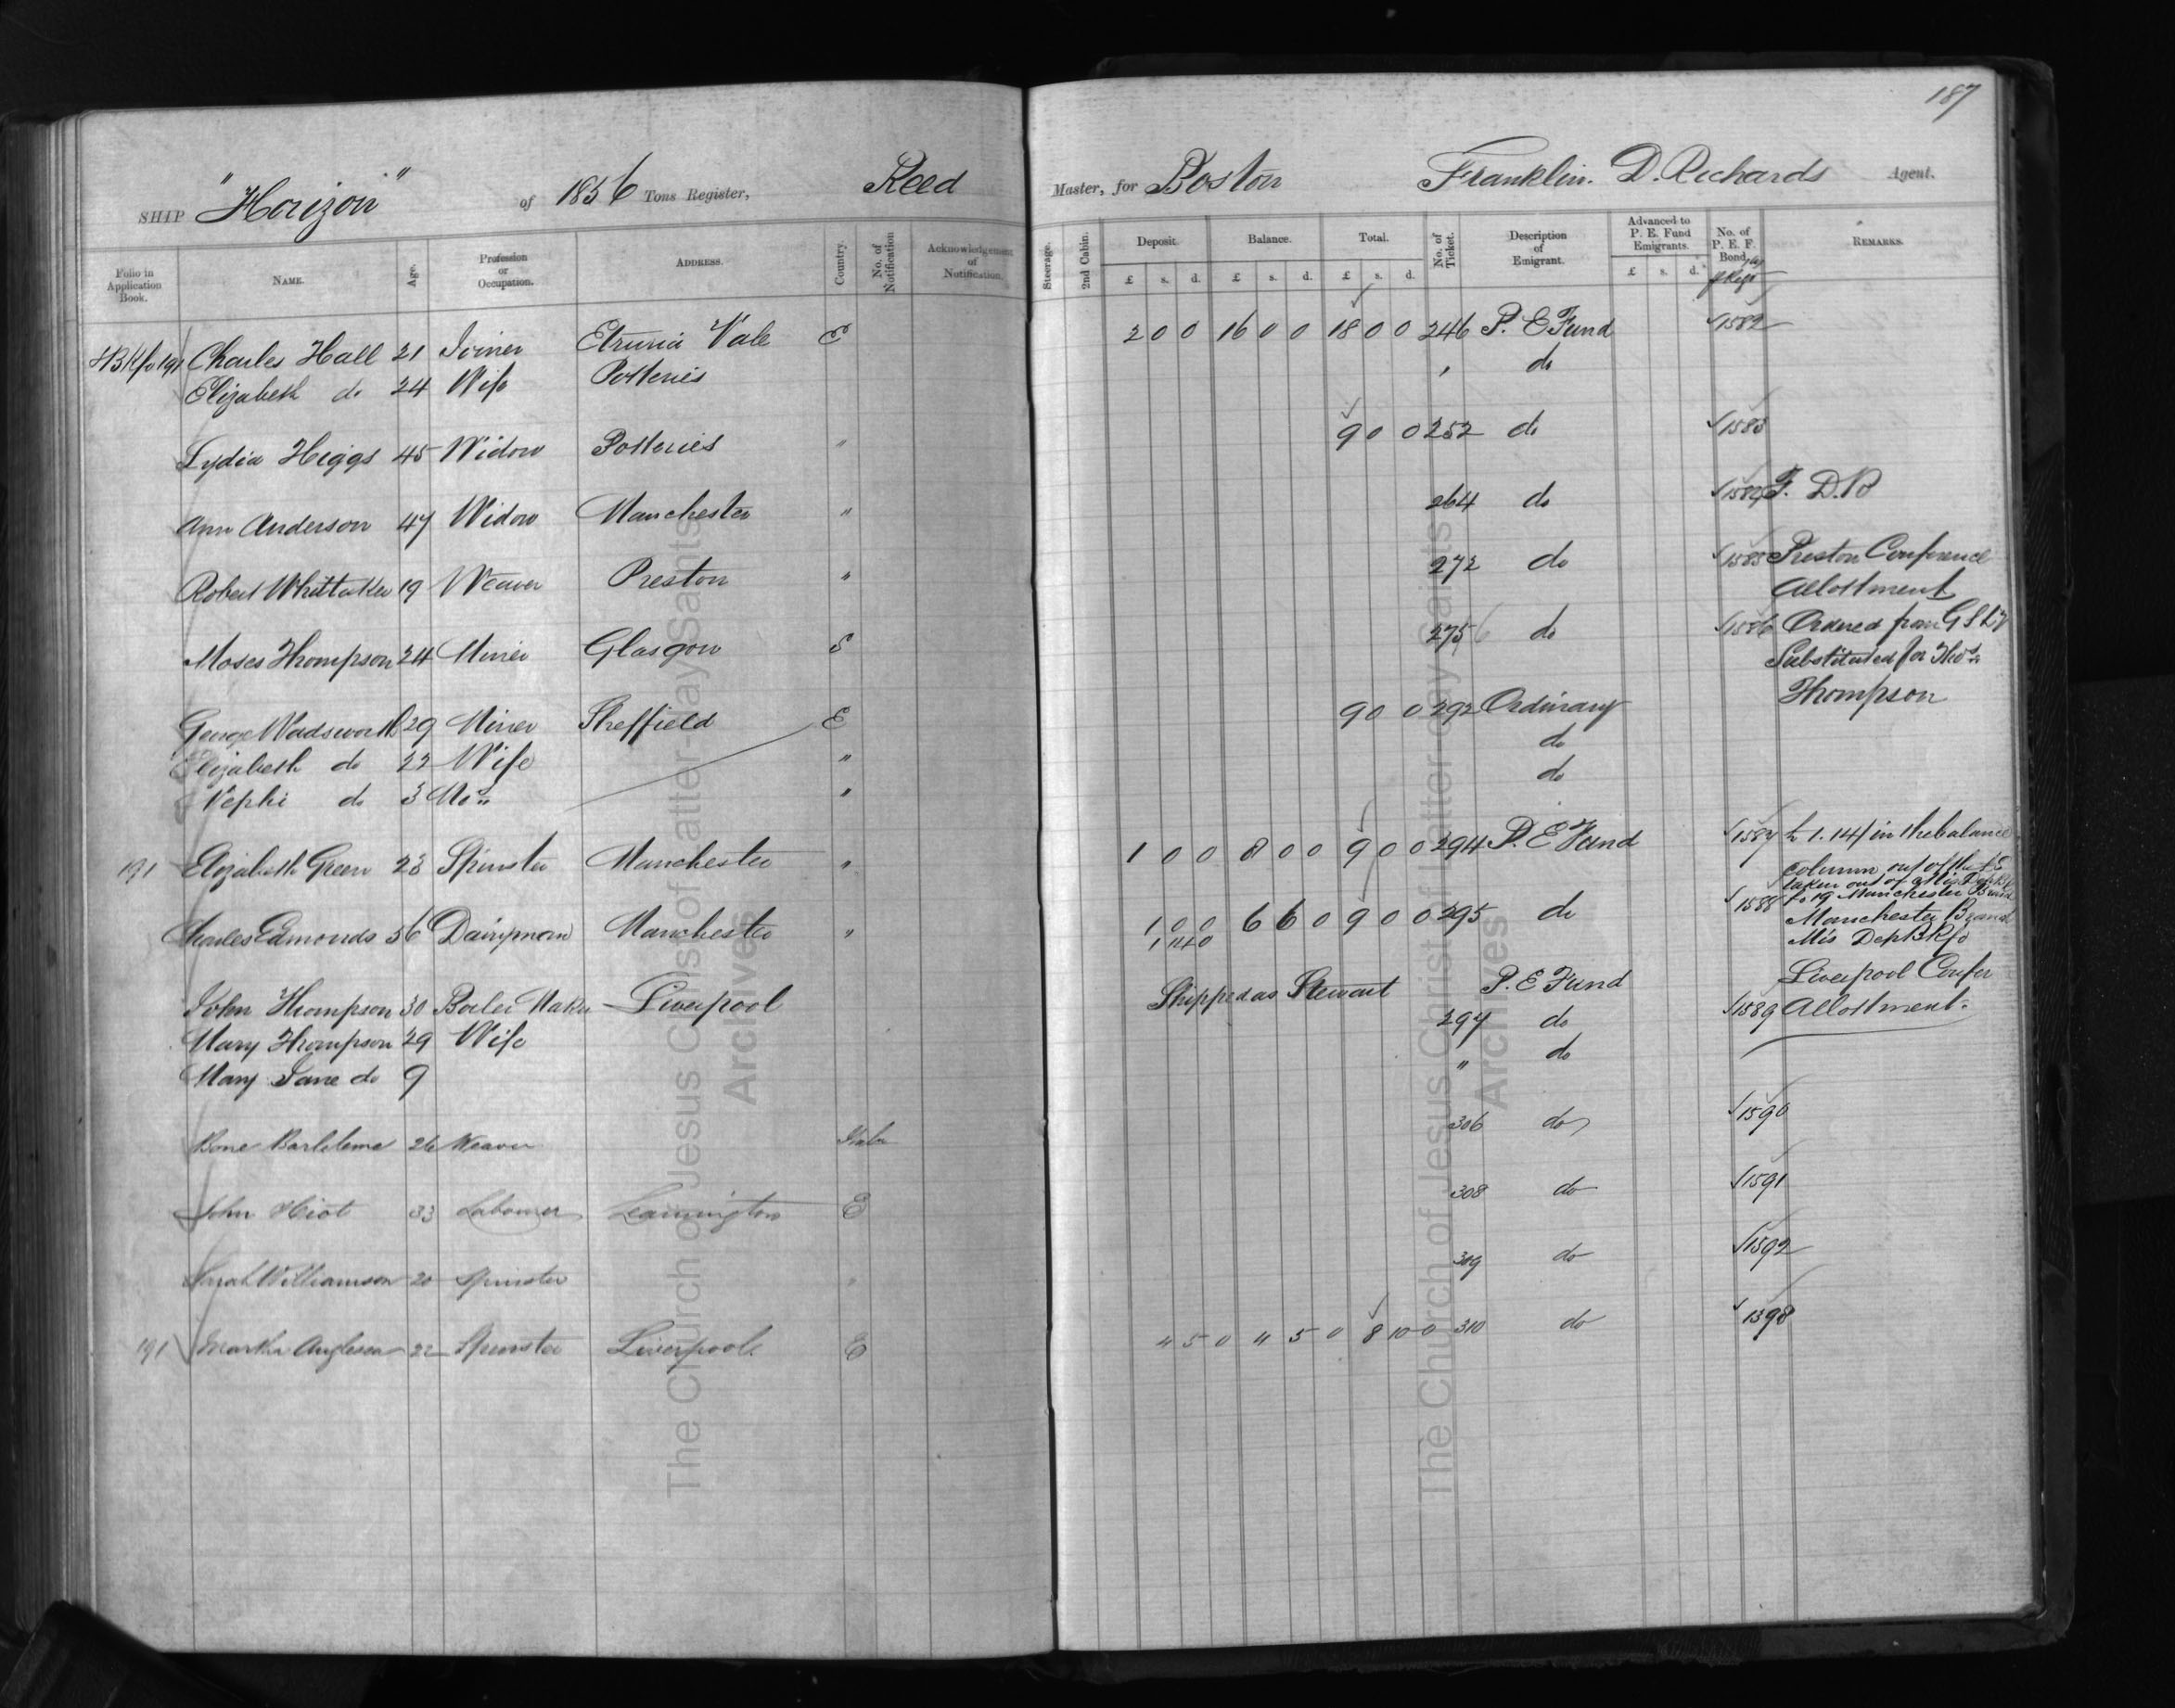 187
SHIP "Horizon" of 1856 Tons Register, Reed Master, for Boston Franklin. D. Richards Agent.
Folio in Application Book. NAME. Age. Profession or Occupation. ADDRESS. Country. No. of Notification Acknowledgement of Notification. Steerage. 2nd Cabin. Deposit. £ s. d. Balance. £ s. d. Total. £ s. d. No. of Ticket. Description of Emigrant. Advanced to P. E. Fund Emigrants. £ s. d. No. of P. E. F. Bond. REMARKS.
Charles Hall 21 Joiner Etruria Vale E 2 0 0 16 0 0 18 0 0 246 P. E Fund 1582
Elizabeth do 24 Wife Potteries " do
Lydia Higgs 45 Widow Potteries " 9 0 0 252 do 1583
Ann Anderson 47 Widow Manchester " 264 do 1584 F. D. R
Robert Whittaker 19 Weaver Preston " 272 do 1585 Preston Conference
Allottment
Moses Thompson 24 Miner Glasgow S 275 do 1586 Ordered from G S L
Substituted for Thos
Thompson
George Wadsworth 29 Miner Sheffield E 9 0 0 292 Ordinary
Elizabeth do 22 Wife " do
Nephi do 3 " do
191 Elizabeth Green 23 Spinster Manchester " 1 0 0 8 0 0 9 0 0 294 P. E Fund 1587 £ 1.14/ in the balance
column out of the
taken out of
Manchester
Charles Edmonds 56 Dairyman Manchester " 1 0 0 6 6 0 9 0 0 295 do 1588 Manchester Branch
1 14 0 Mis Dep Bk fo
John Thompson 30 Boiler Maker Liverpool Shipped as Stewart P. E Fund Liverpool Confer
Mary Thompson 29 Wife 297 do 1589 Allottment.
Mary Jane do 9 " do
Bone Barteleme 26 Weaver 306 do 1590
John Hiot 33 Labourer Leamington E 308 do 1591
Sarah Williamson 20 Spinster " 309 do 1592
191 Martha Anglesea 22 Spinster Liverpool E 4 5 0 4 5 0 8 10 0 310 do 1398
The Church of Jesus Christ of Latter-day Saints
Archives
The Church of Jesus Christ of Latter-day Saints
Archives